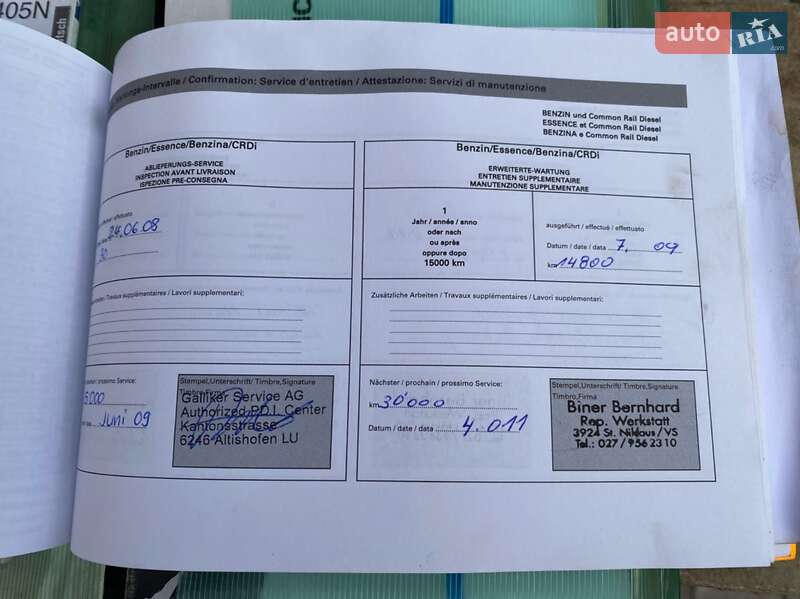 405N
auto RIA .com
-Intervalle / Confirmation: Service d'entretien / Attestazione: Servizi di manutenzione
BENZIN und Common Rail Diesel
ESSENCE et Common Rail Diesel
BENZINA e Common Rail Diesel
Benzin/Essence/Benzina/CRDi
ABLIEFERUNGS-SERVICE
INSPECTION AVANT LIVRAISON
ISPEZIONE PRE-CONSEGNA
effettuato
24.06.08
30
/ Travaux supplémentaires / Lavori supplementari:
prossimo Service:
5000
Juni 09
Stempel,Unterschrift/ Timbre,Signature
Timbro,Firma
Galliker Service AG
Authorized P.D.I. Center
Kantonsstrasse
6246 Altishofen LU
Benzin/Essence/Benzina/CRDi
ERWEITERTE-WARTUNG
ENTRETIEN SUPPLEMENTAIRE
MANUTENZIONE SUPPLEMENTARE
1
Jahr / année / anno
oder nach
ou après
oppure dopo
15000 km
ausgeführt / effectué / effettuato
Datum / date / data 7. 09
km 14800
Zusätzliche Arbeiten / Travaux supplémentaires / Lavori supplementari:
Nächster / prochain / prossimo Service:
km 30'000
Datum / date / data 4.011
Stempel,Unterschrift/ Timbre,Signature
Timbro,Firma
Biner Bernhard
Rep. Werkstatt
3924 St. Niklaus/VS
Tel.: 027 / 956 23 10